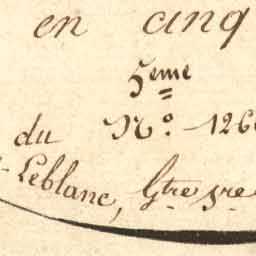 en cinq
5eme
du No. 126
Leblanc, Gtre